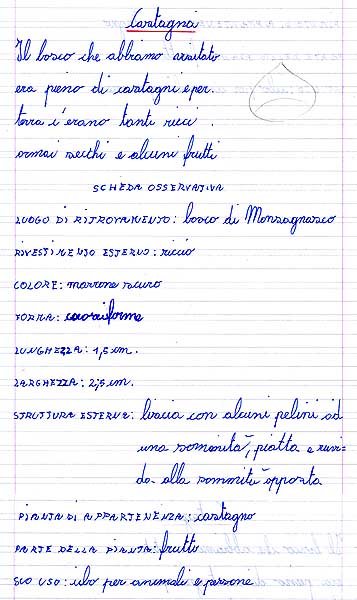 Castagna
Il bosco che abbiamo visitato
era pieno di castagni e per
terra c'erano tanti ricci
ormai secchi e alcuni frutti
SCHEDA OSSERVATIVA
LUOGO DI RITROVAMENTO: bosco di Monsagnasco
RIVESTIMENTO ESTERNO: riccio
COLORE: marrone scuro
FORMA: cuoriforme
LUNGHEZZA: 1,5 cm.
LARGHEZZA: 2,5 cm.
STRUTTURA ESTERNA: liscia con alcuni pelini ad
una sommità, piatta e ruvi-
da alla sommità opposta
PIANTA DI APPARTENENZA: castagno
PARTE DELLA PIANTA: frutto
SUO USO: cibo per animali e persone